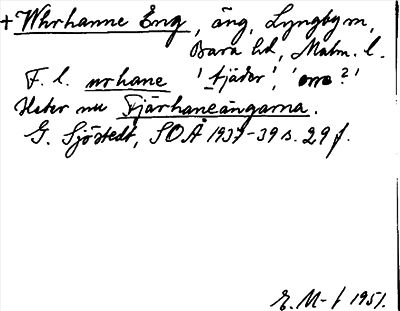 + Whrhanne Eng, äng, Lyngby sn,
Bara hd, Malm. l.
F. l. urhane 'tjäder', 'orre?'
Heter nu Fjärhaneängarna.
G. Sjöstedt, SOÅ 1937-39 s. 29 f.
E. M-f 1951.